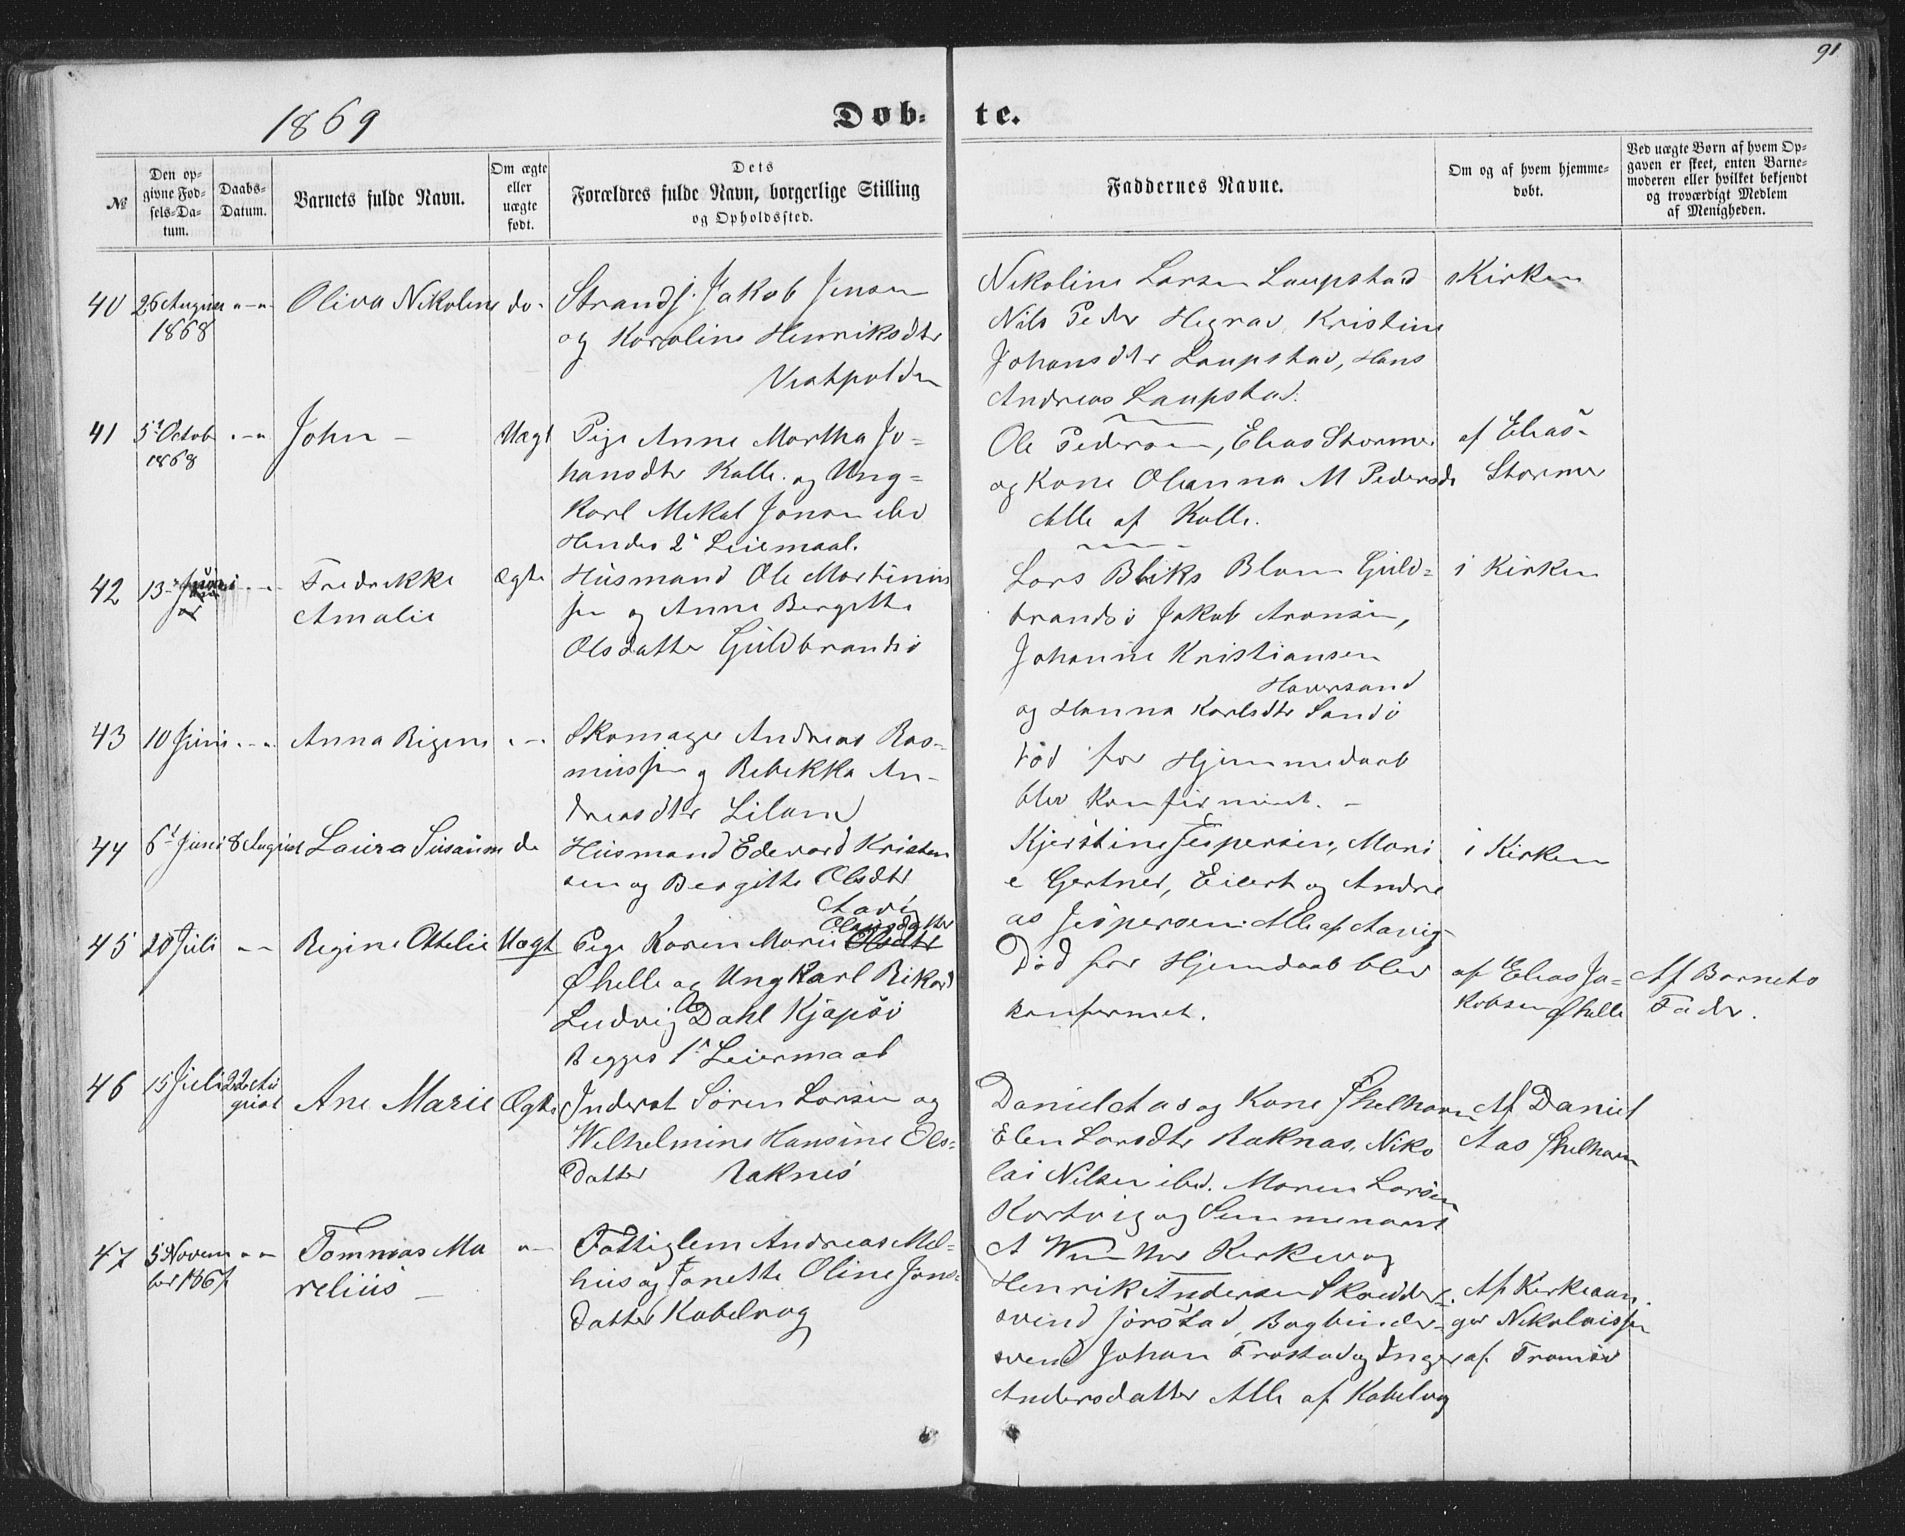 91
1869
Døb-te.
№
Den op-
givne Fød-
sels-Da-
tum.
Daabs-
Datum.
Barnets fulde Navn.
Om ægte
eller
uægte
født.
Dets
Forældres fulde Navn, borgerlige Stilling
og Opholdssted.
Faddernes Navne.
Om og af hvem hjemme-
døbt.
Ved uægte Børn af hvem Op-
gaven er skeet, enten Barne-
moderen eller hvilket bekjendt
og troværdigt Medlem
af Menigheden.
40
26 August
1868
"-"
Oliva Nikoline
do-
Strands. Jakob Jensen
og Karoline Henriksdtr
Vestpolden
Nikoline Larsen Laupstad
Nils Peder Hegrav, Kristine
Johansdtr Laupstad, Hans
Andreas Laupstad.
Kirken
41
5t Octob
1868
"-"
John -
Uægt
Pige Anne Martha Jo-
hansdtr Kalle. og Ung-
karl Mekal Jonsen ibd
Hendes 2t Leiemaal.
Ole Pedersen, Elias Stormer
og Kone Oleanna M Pedersdr
Alle af Kalle.
af Elias
Stormer
42
13
"-"
Fredrekke
Amalie
Ægte
Husmand Ole Martinus
sen og Anne Bergitte
Olsdatter Guldbrandsø
Lars Bliks Blom Guld-
brandsø Jakob Aronsen,
Johanne Kristiansen
Haversand
og Hanna Karlsdtr Sandø
i Kirken
43
10 Juni
"-"
Anna Regine
"-
Skomager Andreas Ras-
mussen og Rebekka An-
dreasdtr Liland
Død før Hjemmedaab
blev konfirmeret. -
44
6t Juni
8 August
Laura Susanne
do
Husmand Edevard Kristen
sen og Bergitte Olsdtr
Aavig
Kjerstine Jespersen, Mari
e Gertner, Eilert og Andre
as Jespersen. Alle af Aavig
i Kirken
45
20 Juli
"-
Regine Ottelie
Uægt
Pige Karen Marie Olsdtr
Olausdatter
Ørhelle og Ungkarl Rikard
Ludvig Dahl Kjøpsø
Begges 1t Leiermaal
Død før Hjemdaab blev
konfermet.
af Elias Ja-
kobsen
Af Barnets
Fader.
46
15 Juli
22 Au
gust
Ane Marie
Ægte
Inderst Søren Larsen og
Wilhelmine Hansine Ols-
datter Raknes
Daniel Aas og Kone Skelhavn
Elen Larsdtr Raknas, Niko
lai Nilsen ibd. Maren Larsen
Kortvig og
A Winther Kirkevog
Af Daniel
Aas Skelhavn
47
5 Novem
ber 1867
"-"
Tommas Ma
relius -
"-
Fattiglem Andreas Mel-
hus og Janette Oline Jons-
datter Kabelvog
Henrik Andersen Skrædder-
svend Jørstad, Bogbinder-
svend Johan Frostad og Inger
Andersdatter Alle af Kabelvog
Af Kirkesan-
ger Nikolaissen
af Tromsø